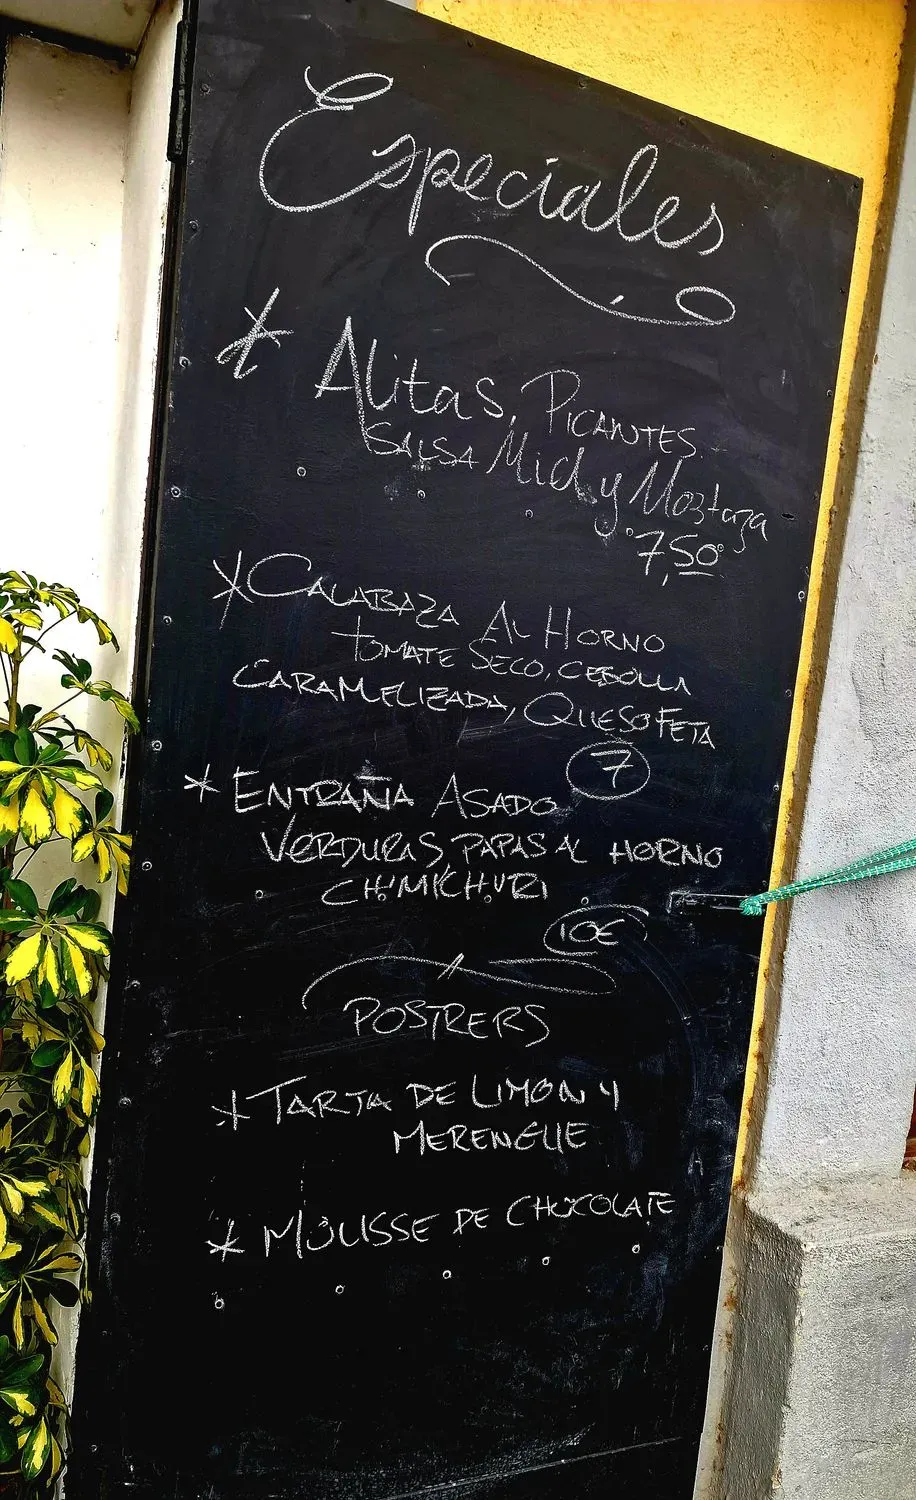 Especiales
* Alitas, PICANTES
SALSA Miel y Mostaza
7,50
* CALABAZA AL HORNO
TOMATE SECO, CEBOLLA
CARAMELIZADA, QUESO FETA
7
* ENTRAÑA ASADO
VERDURAS, PAPAS AL HORNO
CHIMICHURI
10€
POSTRERS
* TARTA DE LIMON Y
MERENGUE
* MOUSSE DE CHOCOLATE